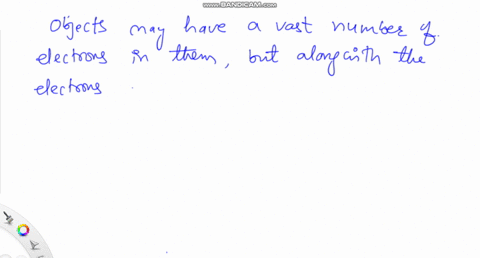 www.BANDICAM.com
Objects may have a vast number of
electrons in them, but alongwith the
electrons